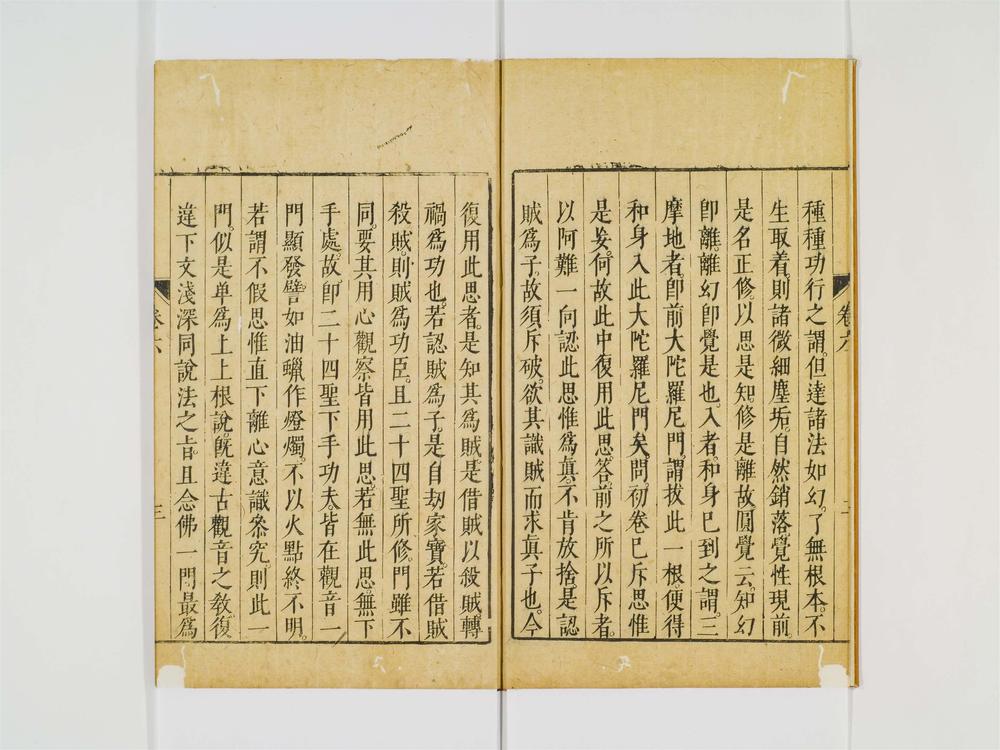 種種功行之謂。但達諸法如幻。了無根本。不
生取着。則諸微細塵垢。自然銷落。覺性現前。
是名正修。以思是知。修是離。故圓覺云。知幻
卽離。離幻卽覺是也。入者。和身已到之謂。三
摩地者。卽前大陀羅尼門。謂拔此一根。便得
和身入此大陀羅尼門矣。問。初卷已斥思惟
是妄。何故此中復用此思。答。前之所以斥者。
以阿難一向認此思惟爲眞。不肯放捨。是認
賊爲子。故須斥破。欲其識賊而求眞子也。今
復用此思者。是知其爲賊。是借賊以殺賊。轉
禍爲功也。若認賊爲子。是自刧家寶。若借賊
殺賊。則賊爲功臣。且二十四聖所修。門雖不
同。要其用心觀察。皆用此思。若無此思。無下
手處。故卽二十四聖下手功夫。皆在觀音一
門顯發。譬如油蠟作燈燭。不以火點終不明。
若謂不假思惟直下離心意識叅究。則此一
門。似是单爲上上根說。旣違古觀音之敎。復
違下文淺深同說法之㫖。且念佛一門最爲
卷六
三